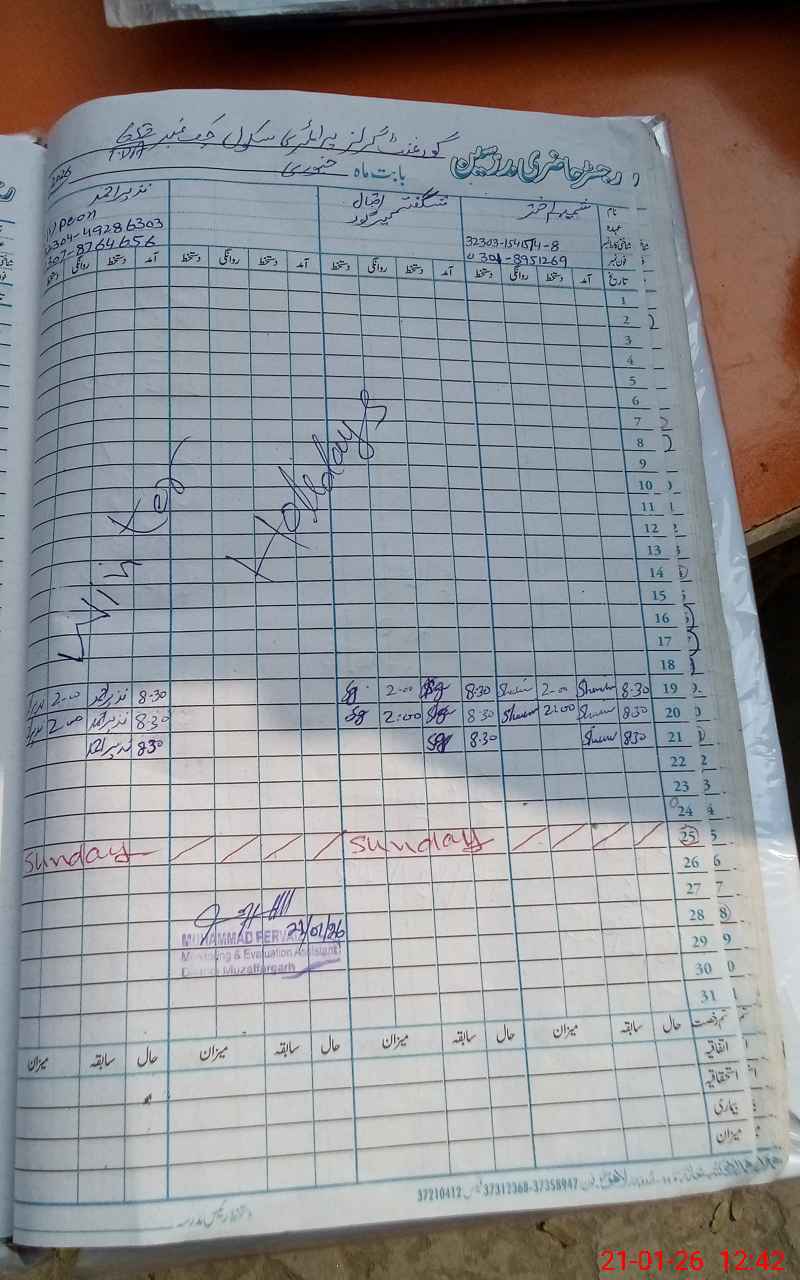 رجسٹر حاضری مدرسین گورنمنٹ گرلز پرائمری سکول چک نمبر 652 TDA
بابت ماہ جنوری 2026
نام شمیم اختر شگفتہ اقبال نذیر احمد
عہدہ peon
32303-1545/4-8 0304-49286303
فون نمبر 0301-8951269 0307-8764656
تاریخ آمد دستخط روانگی دستخط آمد دستخط روانگی دستخط آمد دستخط روانگی دستخط آمد دستخط روانگی دستخط
1
2
3
4
5
6
7
8
9
10
11
12
13
14
15
16
17
18
Winter Holidays
19 8.30 2-00 8.30 2-00 8.30 نذیر احمد 2-00
20 8.30 2:00 8.30 2:00 8.30 نذیر احمد 2-00
21 830 8.30 830 نذیر احمد
22
23
24
25 sunday sunday
26
27
28
29
30
31
21/01/26
MUHAMMAD PERVAI
Monitoring & Evaluation Assistant
District Muzaffargarh
قسم رخصت حال سابقہ میزان حال سابقہ میزان حال سابقہ میزان حال سابقہ میزان
اتفاقیہ
استحقاقیہ
بیماری
میزان
37210412 37312368-37358947
دستخط رئیس مدرسہ
21-01-26 12:42